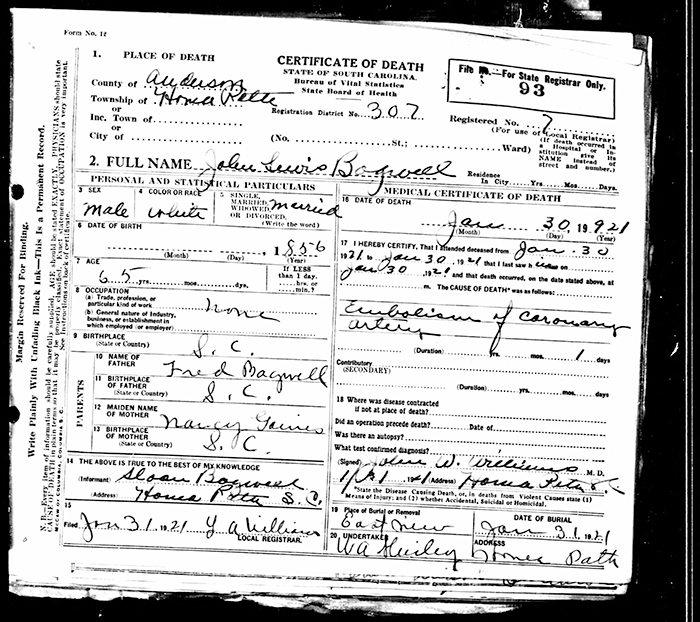 Form No. 12
1. PLACE OF DEATH
County of Anderson
Township of Honea Path
or
Inc. Town of
or
City of
CERTIFICATE OF DEATH
STATE OF SOUTH CAROLINA.
Bureau of Vital Statistics
State Board of Health
Registration District No. 307
(No. St.; Ward)
File No.—For State Registrar Only.
93
Registered No. 7
(For use of Local Registrar)
(If death occurred in a Hospital or Institution give its NAME instead of street and number.)
2. FULL NAME John Lewis Bagwell
Residence
In City Yrs. Mos. Days.
PERSONAL AND STATISTICAL PARTICULARS
3 SEX
Male
4 COLOR OR RACE
White
5 SINGLE, MARRIED, WIDOWED, OR DIVORCED.
(Write the word)
Married
6 DATE OF BIRTH
1856
(Month) (Day) (Year)
7 AGE
65 yrs. mos. days
If LESS than 1 day.
hrs. or min.?
8 OCCUPATION
(a) Trade, profession, or particular kind of work
none
(b) General nature of Industry, business, or establishment in which employed (or employer)
9 BIRTHPLACE
(State or Country)
S. C.
PARENTS
10 NAME OF FATHER
Fred Bagwell
11 BIRTHPLACE OF FATHER
(State or Country)
S. C.
12 MAIDEN NAME OF MOTHER
Nancy Gaines
13 BIRTHPLACE OF MOTHER
(State or Country)
S. C.
14 THE ABOVE IS TRUE TO THE BEST OF MY KNOWLEDGE
(Informant) Sloan Bagwell
(Address) Honea Path S. C.
15
Filed Jan 31 1921
LOCAL REGISTRAR.
MEDICAL CERTIFICATE OF DEATH
16 DATE OF DEATH
Jan 30 1921
(Month) (Day) (Year)
17 I HEREBY CERTIFY, That I attended deceased from Jan 30
1921 to Jan 30 1921 that I last saw him alive on
Jan 30 1921 and that death occurred, on the date stated above, at
m. The CAUSE OF DEATH* was as follows:
Embolism of Coronary
artery
(Duration) yrs. mos. 1 days
Contributory
(SECONDARY)
(Duration) yrs. mos. days
18 Where was disease contracted
if not at place of death?
Did an operation precede death? Date of
Was there an autopsy?
What test confirmed diagnosis?
(Signed) John W. Williams M. D.
(Address) Honea Path S C
*State the Disease Causing Death, or, in deaths from Violent Causes state (1)
Means of Injury; and (2) whether Accidental, Suicidal or Homicidal.
19 Place of Burial or Removal
East View
DATE OF BURIAL
Jan 31 1921
20 UNDERTAKER
ADDRESS
Honea Path
Margin Reserved For Binding.
Write Plainly With Unfading Black Ink—This Is a Permanent Record.
N. B.—Every item of information should be carefully supplied. AGE should be stated EXACTLY. PHYSICIANS should state
CAUSE OF DEATH in plain terms so that it may be properly classified. Exact statement of OCCUPATION is very important.
See instructions on back of certificate.